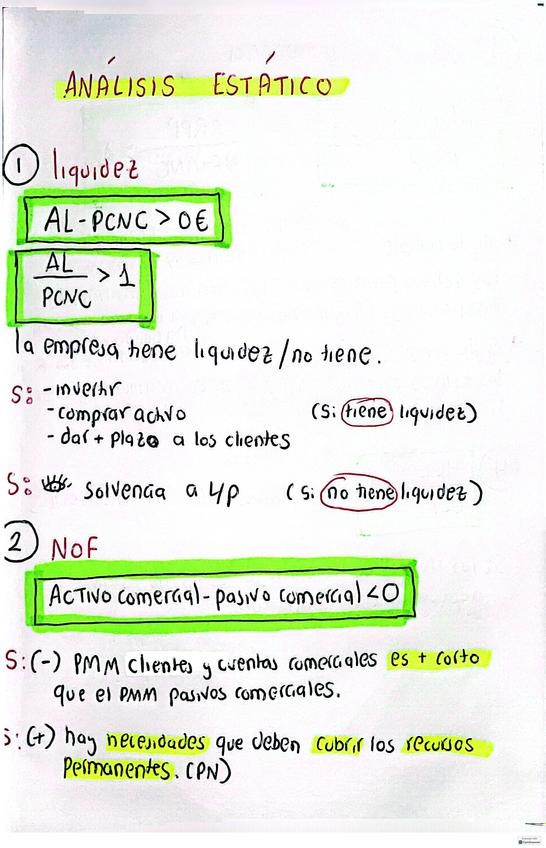 ANÁLISIS ESTÁTICO
1 liquidez
AL-PCNC > 0€
AL
PCNC
> 1
la empresa tiene liquidez/no tiene.
S: - invertir
- comprar activo
(Si tiene liquidez)
- dar + plazo a los clientes
S: solvencia a L/P (Si no tiene liquidez)
2 NOF
Activo comercial - pasivo comercial < 0
S: (-) PMM clientes y cuentas comerciales es + corto
que el PMM pasivos comerciales.
S: (+) hay necesidades que deben cubrir los recursos
Permanentes. (PN)